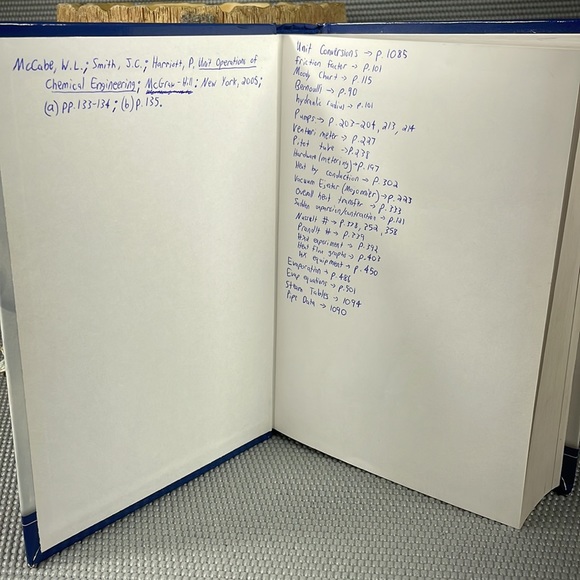 McCabe, W.L.; Smith, J.C.; Harriott, P. Unit Operations of
Chemical Engineering; McGraw-Hill: New York, 2005;
(a) pp. 133-134; (b) p. 135.
Unit Conversions → p. 1085
Friction factor → p. 101
Moody Chart → p. 115
Bernoulli → p. 90
hydraulic radius → p. 101
Pumps → p. 203-204, 213, 214
Venturi meter → p. 227
Pitot tube → p. 238
Hardware (metering) → p. 197
Heat by conduction → p. 302
Vacuum Ejector (Mayonnier) → p. 223
Overall heat transfer → p. 333
Sudden expansion/contraction → p. 121
Nusselt # → p. 338, 352, 358
Prandtl # → p. 339
experiment → p. 392
Heat Flux graphs → p. 403
equipment → p. 450
Evaporation → p. 486
Evap equations → p. 501
Steam Tables → 1094
Pipe Data → 1090